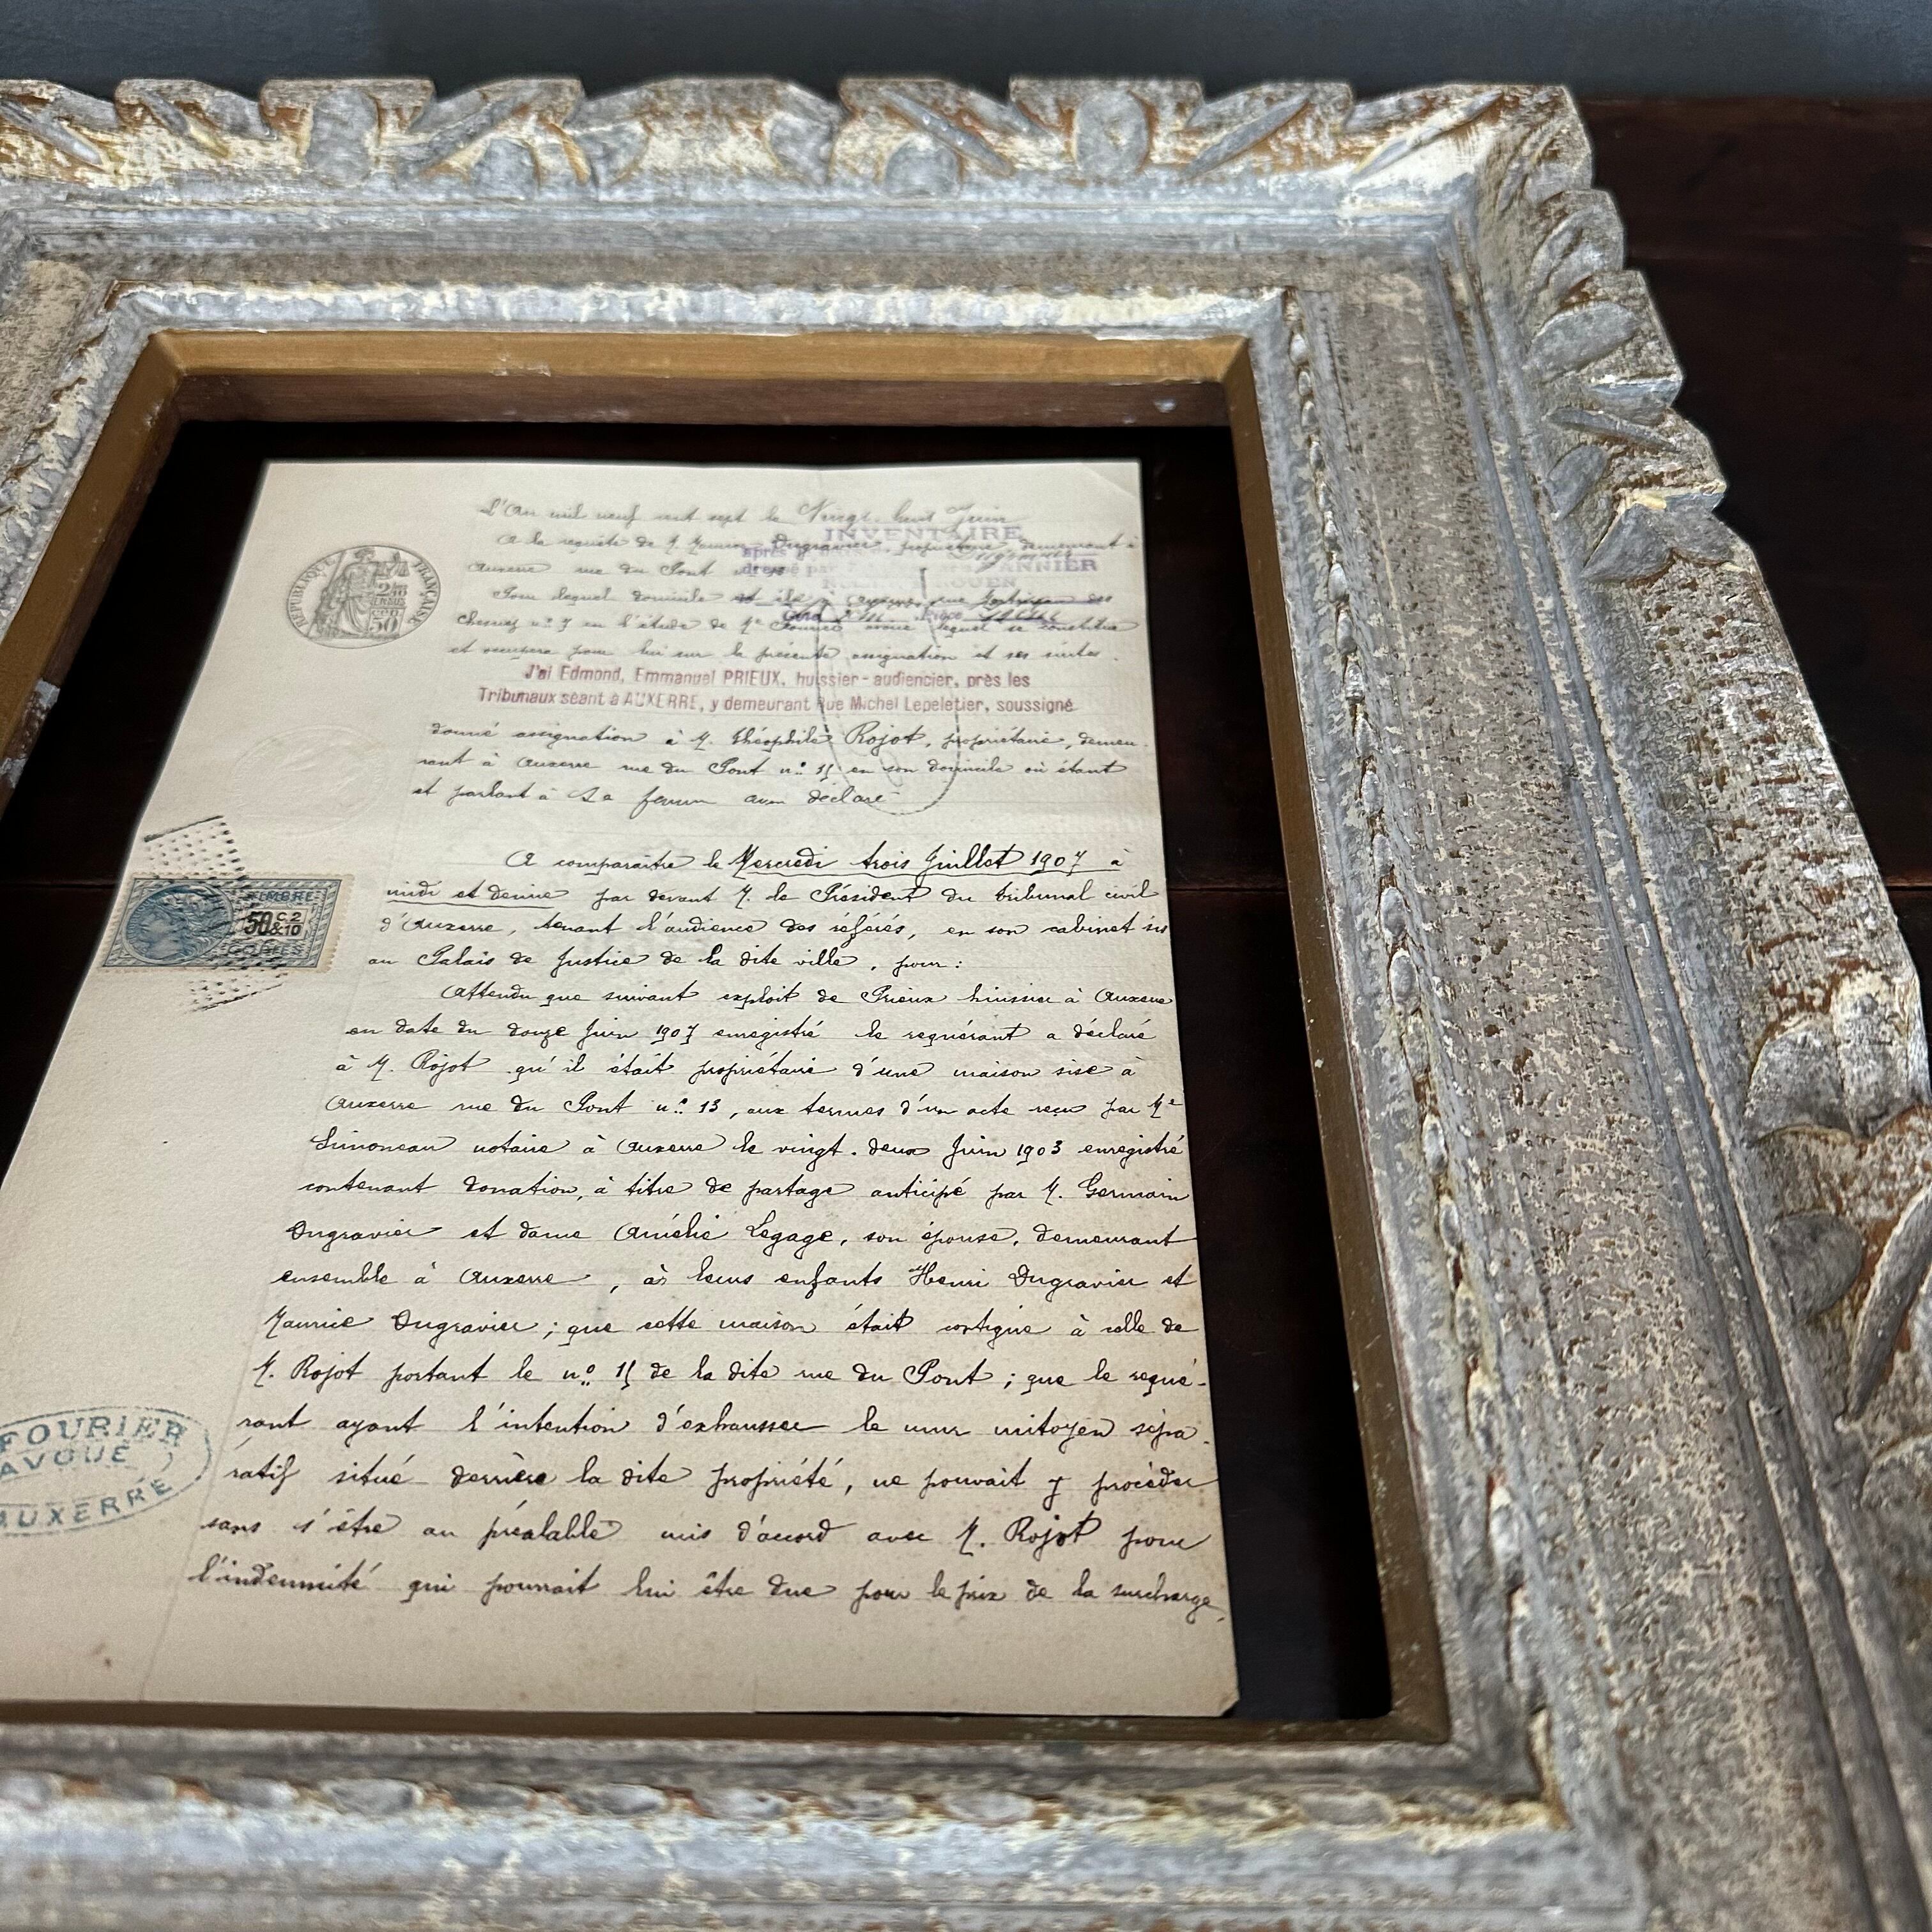 L'An mil neuf cent sept le Vingt-huit Juin
INVENTAIRE
A la requête de M. Maurice Dugravier, propriétaire, demeurant à
après
dressé par ANNIER
Auxerre rue du Pont
ROUEN
Pour lequel domicile est élu à Auxerre, rue des
Chesnez nº 7 en l'étude de Me Fourier avoué lequel se constitue
et occupera pour lui sur la présente assignation et ses suites.
J'ai Edmond, Emmanuel PRIEUX, huissier-audiencier, près les
Tribunaux séant à AUXERRE, y demeurant Rue Michel Lepeletier, soussigné
RÉPUBLIQUE FRANÇAISE
donné assignation à M. Théophile Rojot, propriétaire, demeu-
rant à Auxerre rue du Pont nº 15 en son domicile où étant
et parlant à Sa femme déclaré
A comparaître le Mercredi trois Juillet 1907 à
midi et demie par devant M. le Président du tribunal civil
d'Auxerre, tenant l'audience des référés, en son cabinet sis
au Palais de Justice de la dite ville, pour:
TIMBRE
50 C 2
&10
Attendu que suivant exploit de Prieux huissier à Auxerre
en date du douze Juin 1907 enregistré le requérant a déclaré
à M. Rojot qu'il était propriétaire d'une maison sise à
Auxerre rue du Pont nº 13, aux termes d'un acte reçu par Me
Limoneau notaire à Auxerre le vingt-deux Juin 1903 enregistré
contenant donation, à titre de partage anticipé par M. Germain
Dugravier et dame Amélie Legage, son épouse, demeurant
ensemble à Auxerre, à leurs enfants Henri Dugravier et
Maurice Dugravier; que cette maison était contigue à celle de
M. Rojot portant le nº 15 de la dite rue du Pont; que le requé-
rant ayant l'intention d'exhausser le mur mitoyen sépa-
ratif situé derrière la dite propriété, ne pouvait y procéder
sans s'être au préalable mis d'accord avec M. Rojot pour
l'indemnité qui pourrait lui être due pour le prix de la surcharge,
FOURIER
AVOUÉ
AUXERRE